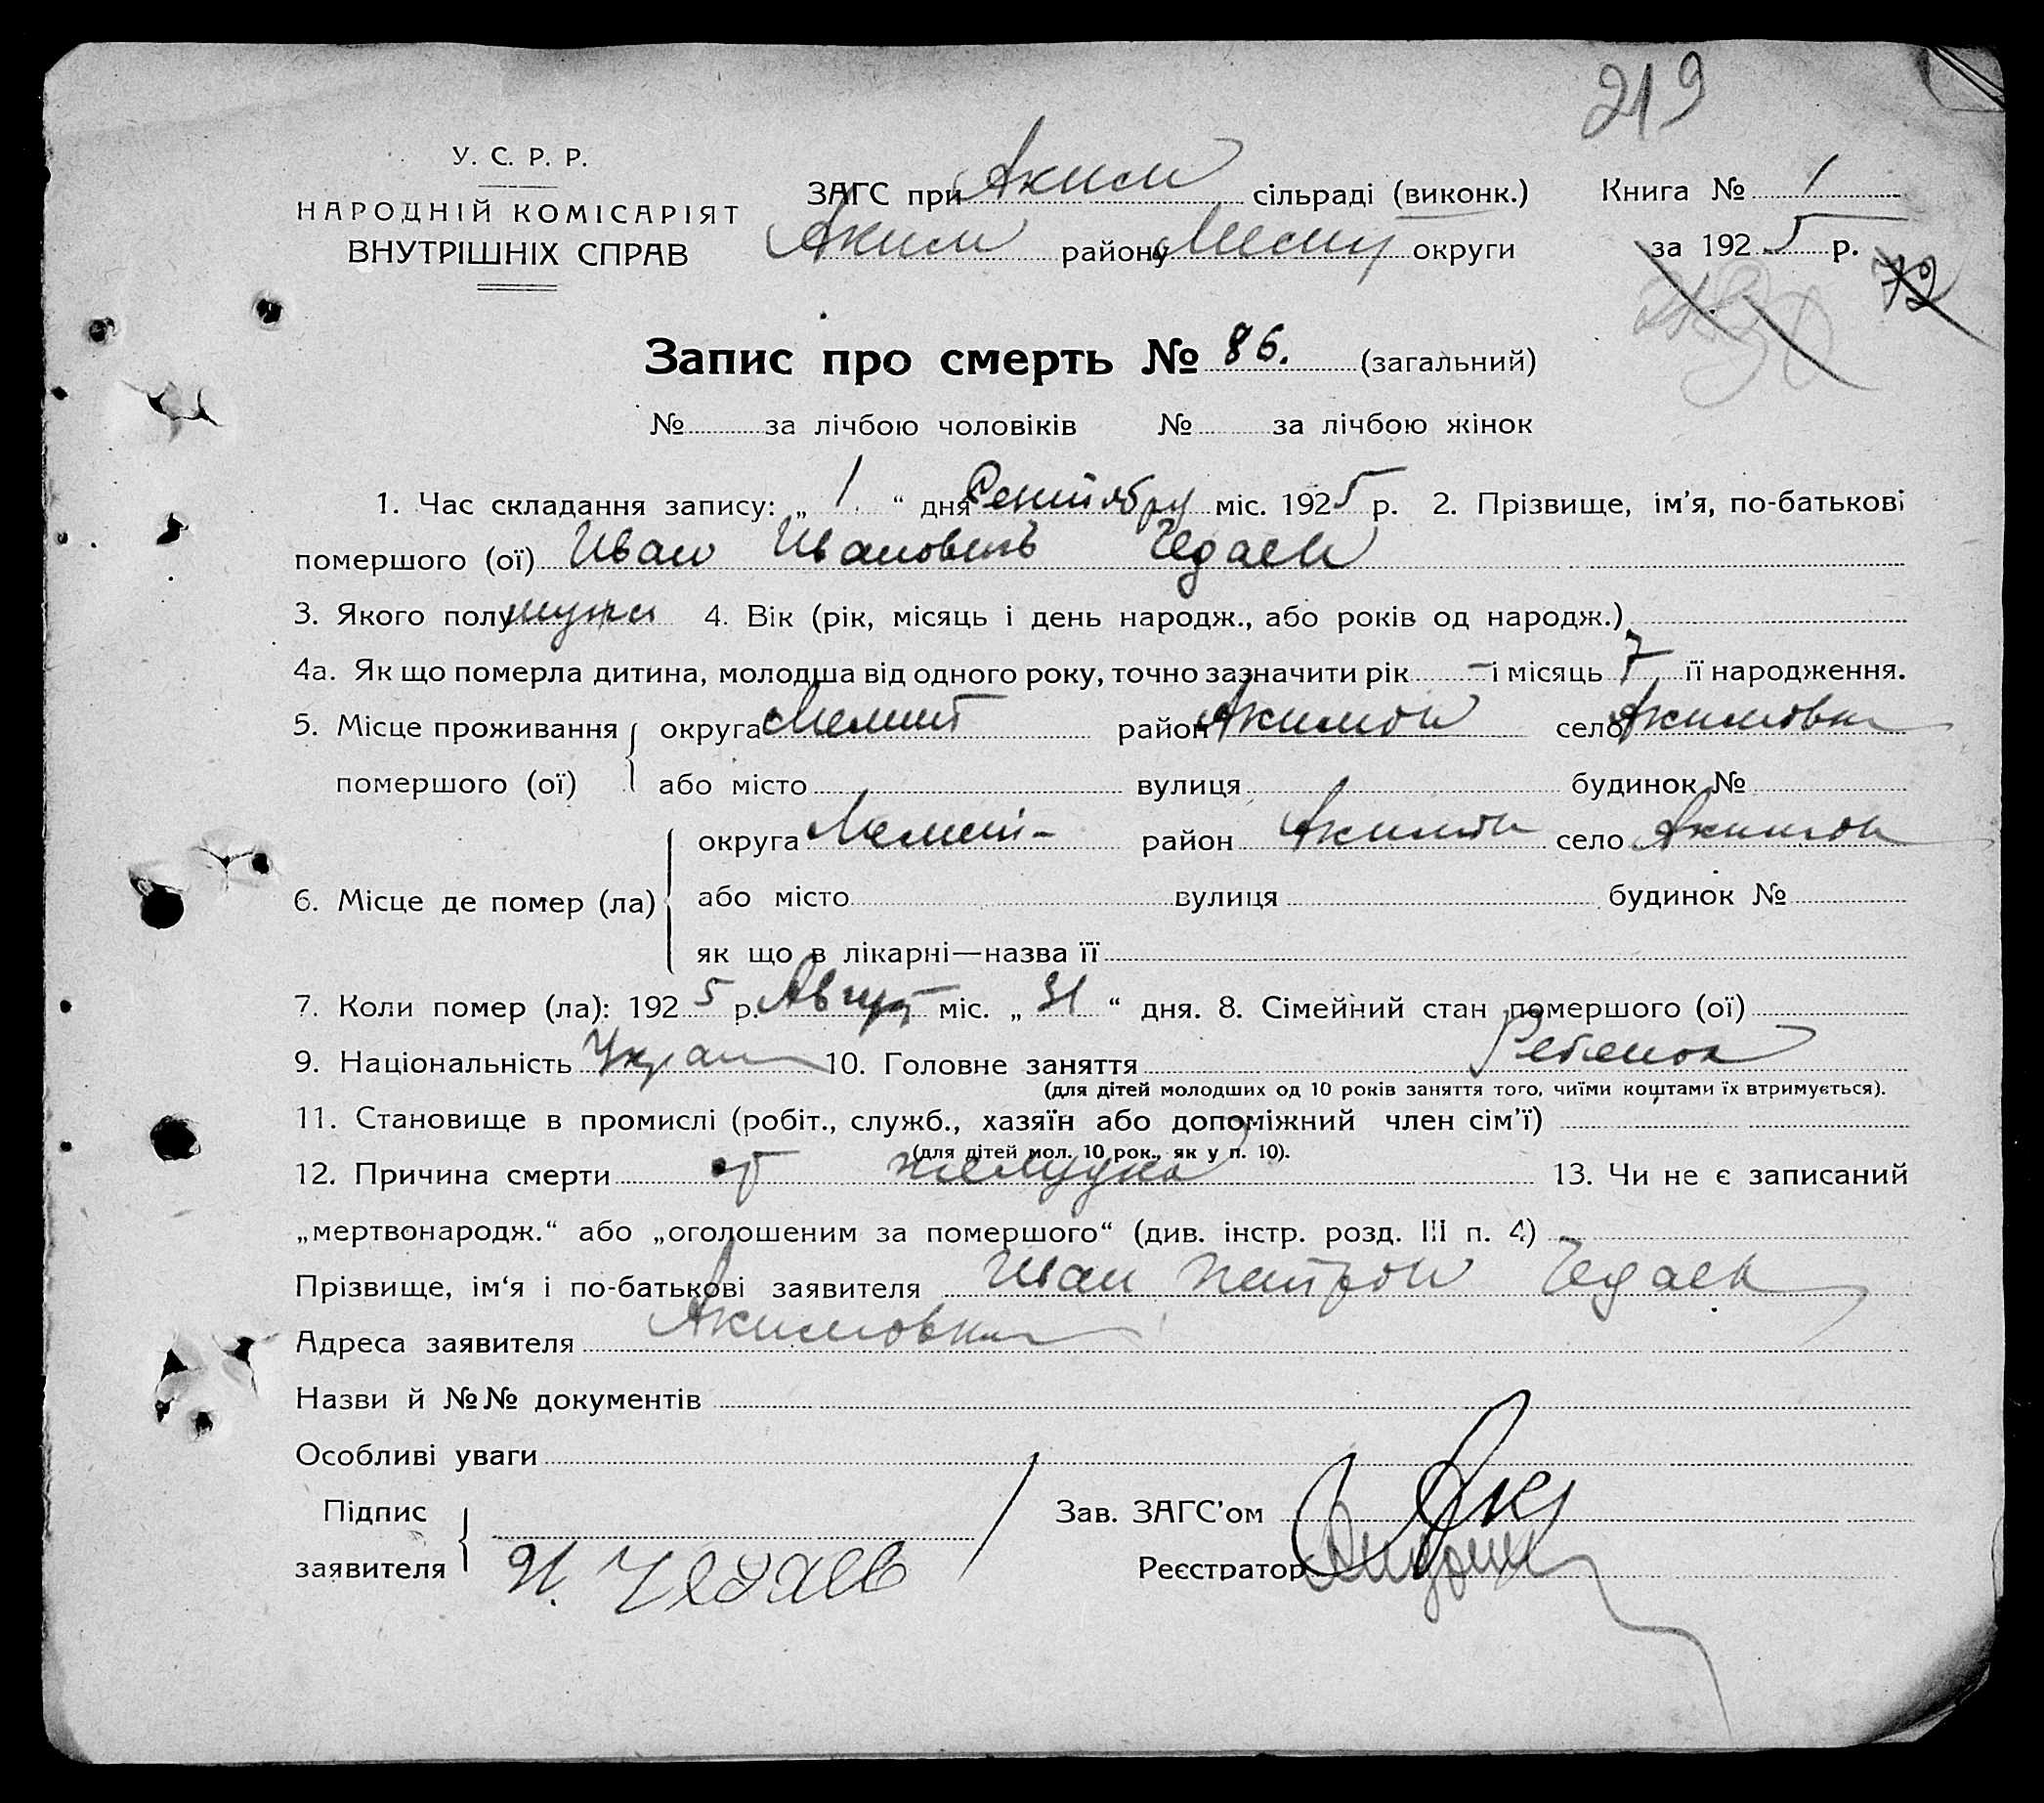 219
У. С. Р. Р.
НАРОДНІЙ КОМІСАРІЯТ
ВНУТРІШНІХ СПРАВ
ЗАГС при Аким сільраді (виконк.)
Аким району округи
Книга № 1
за 1925 р. 72
Запис про смерть № 86. (загальний)
№ за лічбою чоловіків № за лічбою жінок
1. Час складання запису: „ 1 “ дня Сентября міс. 1925 р. 2. Прізвище, ім'я, по-батькові
помершого (ої) Иван Иванович Чедаев
3. Якого полу мужс 4. Вік (рік, місяць і день народж., або років од народж.)
4а. Як що померла дитина, молодша від одного року, точно зазначити рік – і місяць 7 її народження.
5. Місце проживання округа Мелит район Акимов село Акимовка
помершого (ої) або місто вулиця будинок №
округа Мелит- район Акимов село Акимов
6. Місце де помер (ла) або місто вулиця будинок №
як що в лікарні—назва її
7. Коли помер (ла): 1925 р. Август міс. „ 31 “ дня. 8. Сімейний стан помершого (ої)
9. Національність Украин 10. Головне заняття Ребенок
(для дітей молодших од 10 років заняття того, чиїми коштами їх втримується).
11. Становище в промислі (робіт., служб., хазяїн або допоміжний член сім'ї)
(для дітей мол. 10 рок., як у п. 10).
12. Причина смерти от желудка 13. Чи не є записаний
„мертвонародж.“ або „оголошеним за помершого“ (див. інстр. розд. III п. 4)
Прізвище, ім'я і по-батькові заявителя Иван Петров Чедаев
Адреса заявителя Акимовка
Назви й №№ документів
Особливі уваги
Підпис
заявителя И. Чедаев
Зав. ЗАГС'ом
Реєстратор